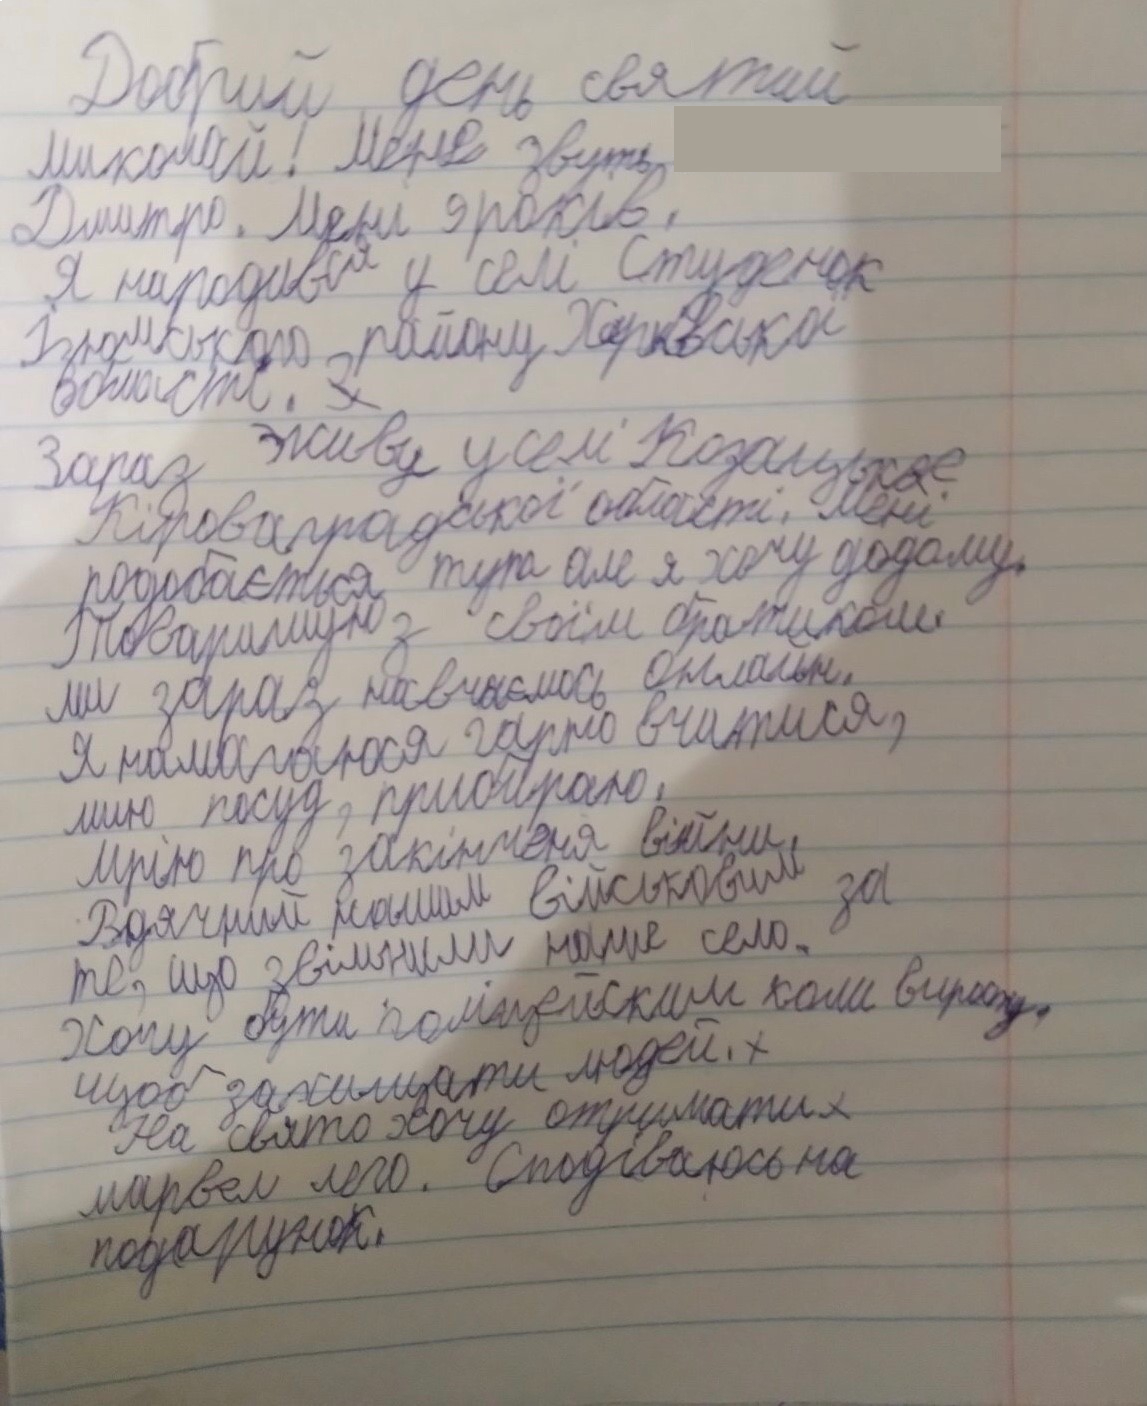 Добрий день святий
миколай! Мене звуть
Дмитро. Мені 9 років.
Я народився у селі Студенок
Ізюмського району Харківської
области. З
Зараз живу у селі Козацькае
Кіроваградської області. Мені
подобається тута але я хочу додому.
Товаришую з своїм братиком.
ми зараз навчаємось онлайн.
Я намагаюся гарно вчитися,
мию посуд, прибіраю.
мрію про закінченя війни.
Вдячний нашим військовим за
те, що звільнили наше село.
Хочу бути поліцейским коли виросту.
щоб захищати людей. х
На свято хочу отримати х
марвел лего. Сподіваюсь на
подарунок.